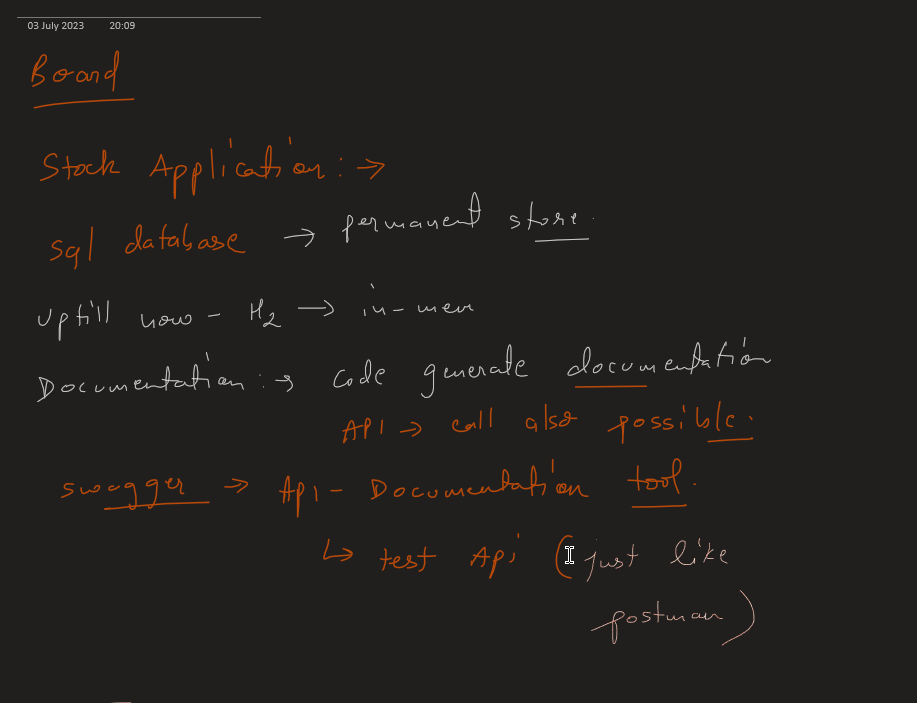 03 July 2023 20:09
Board
Stock Application: →
Sql database → permanent store.
Uptill now - H2 → in-mem
Documentation: → Code generate documentation
API → call also possible.
swagger → Api - Documentation tool.
↳ test Api (just like
postman)